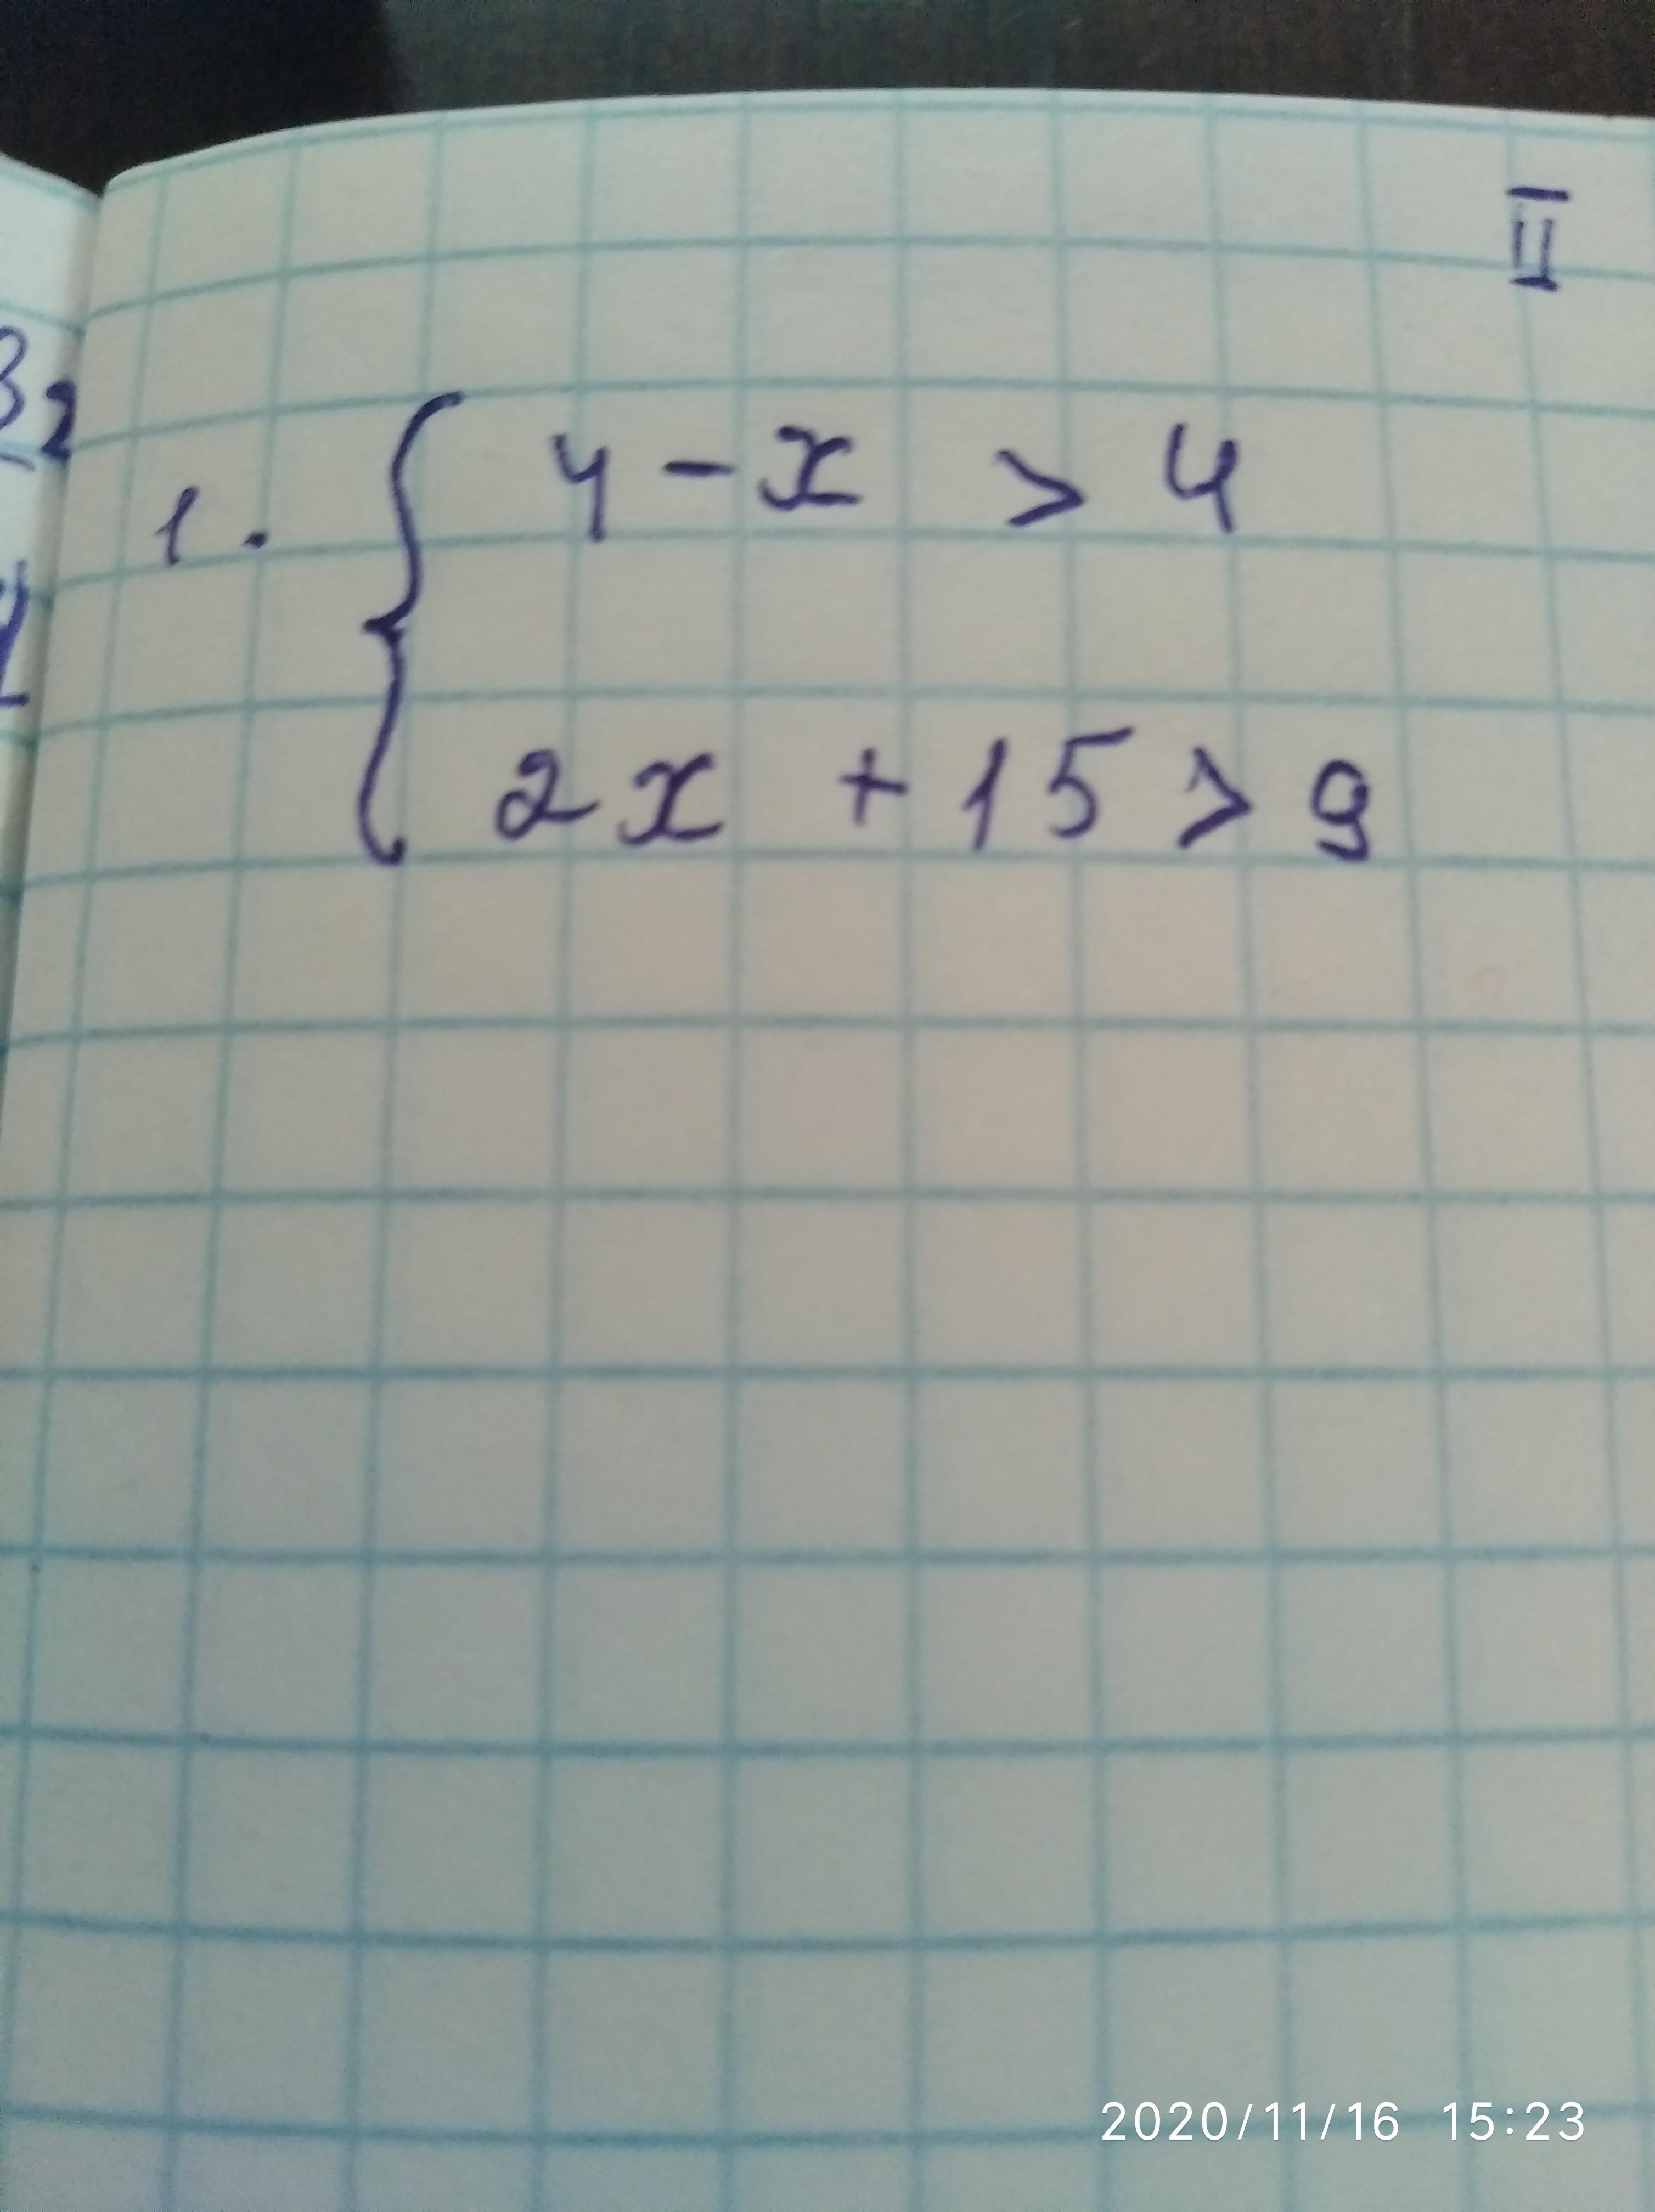 II
32
1. { 4 - x > 4
2x + 15 > 9
2020/11/16 15:23